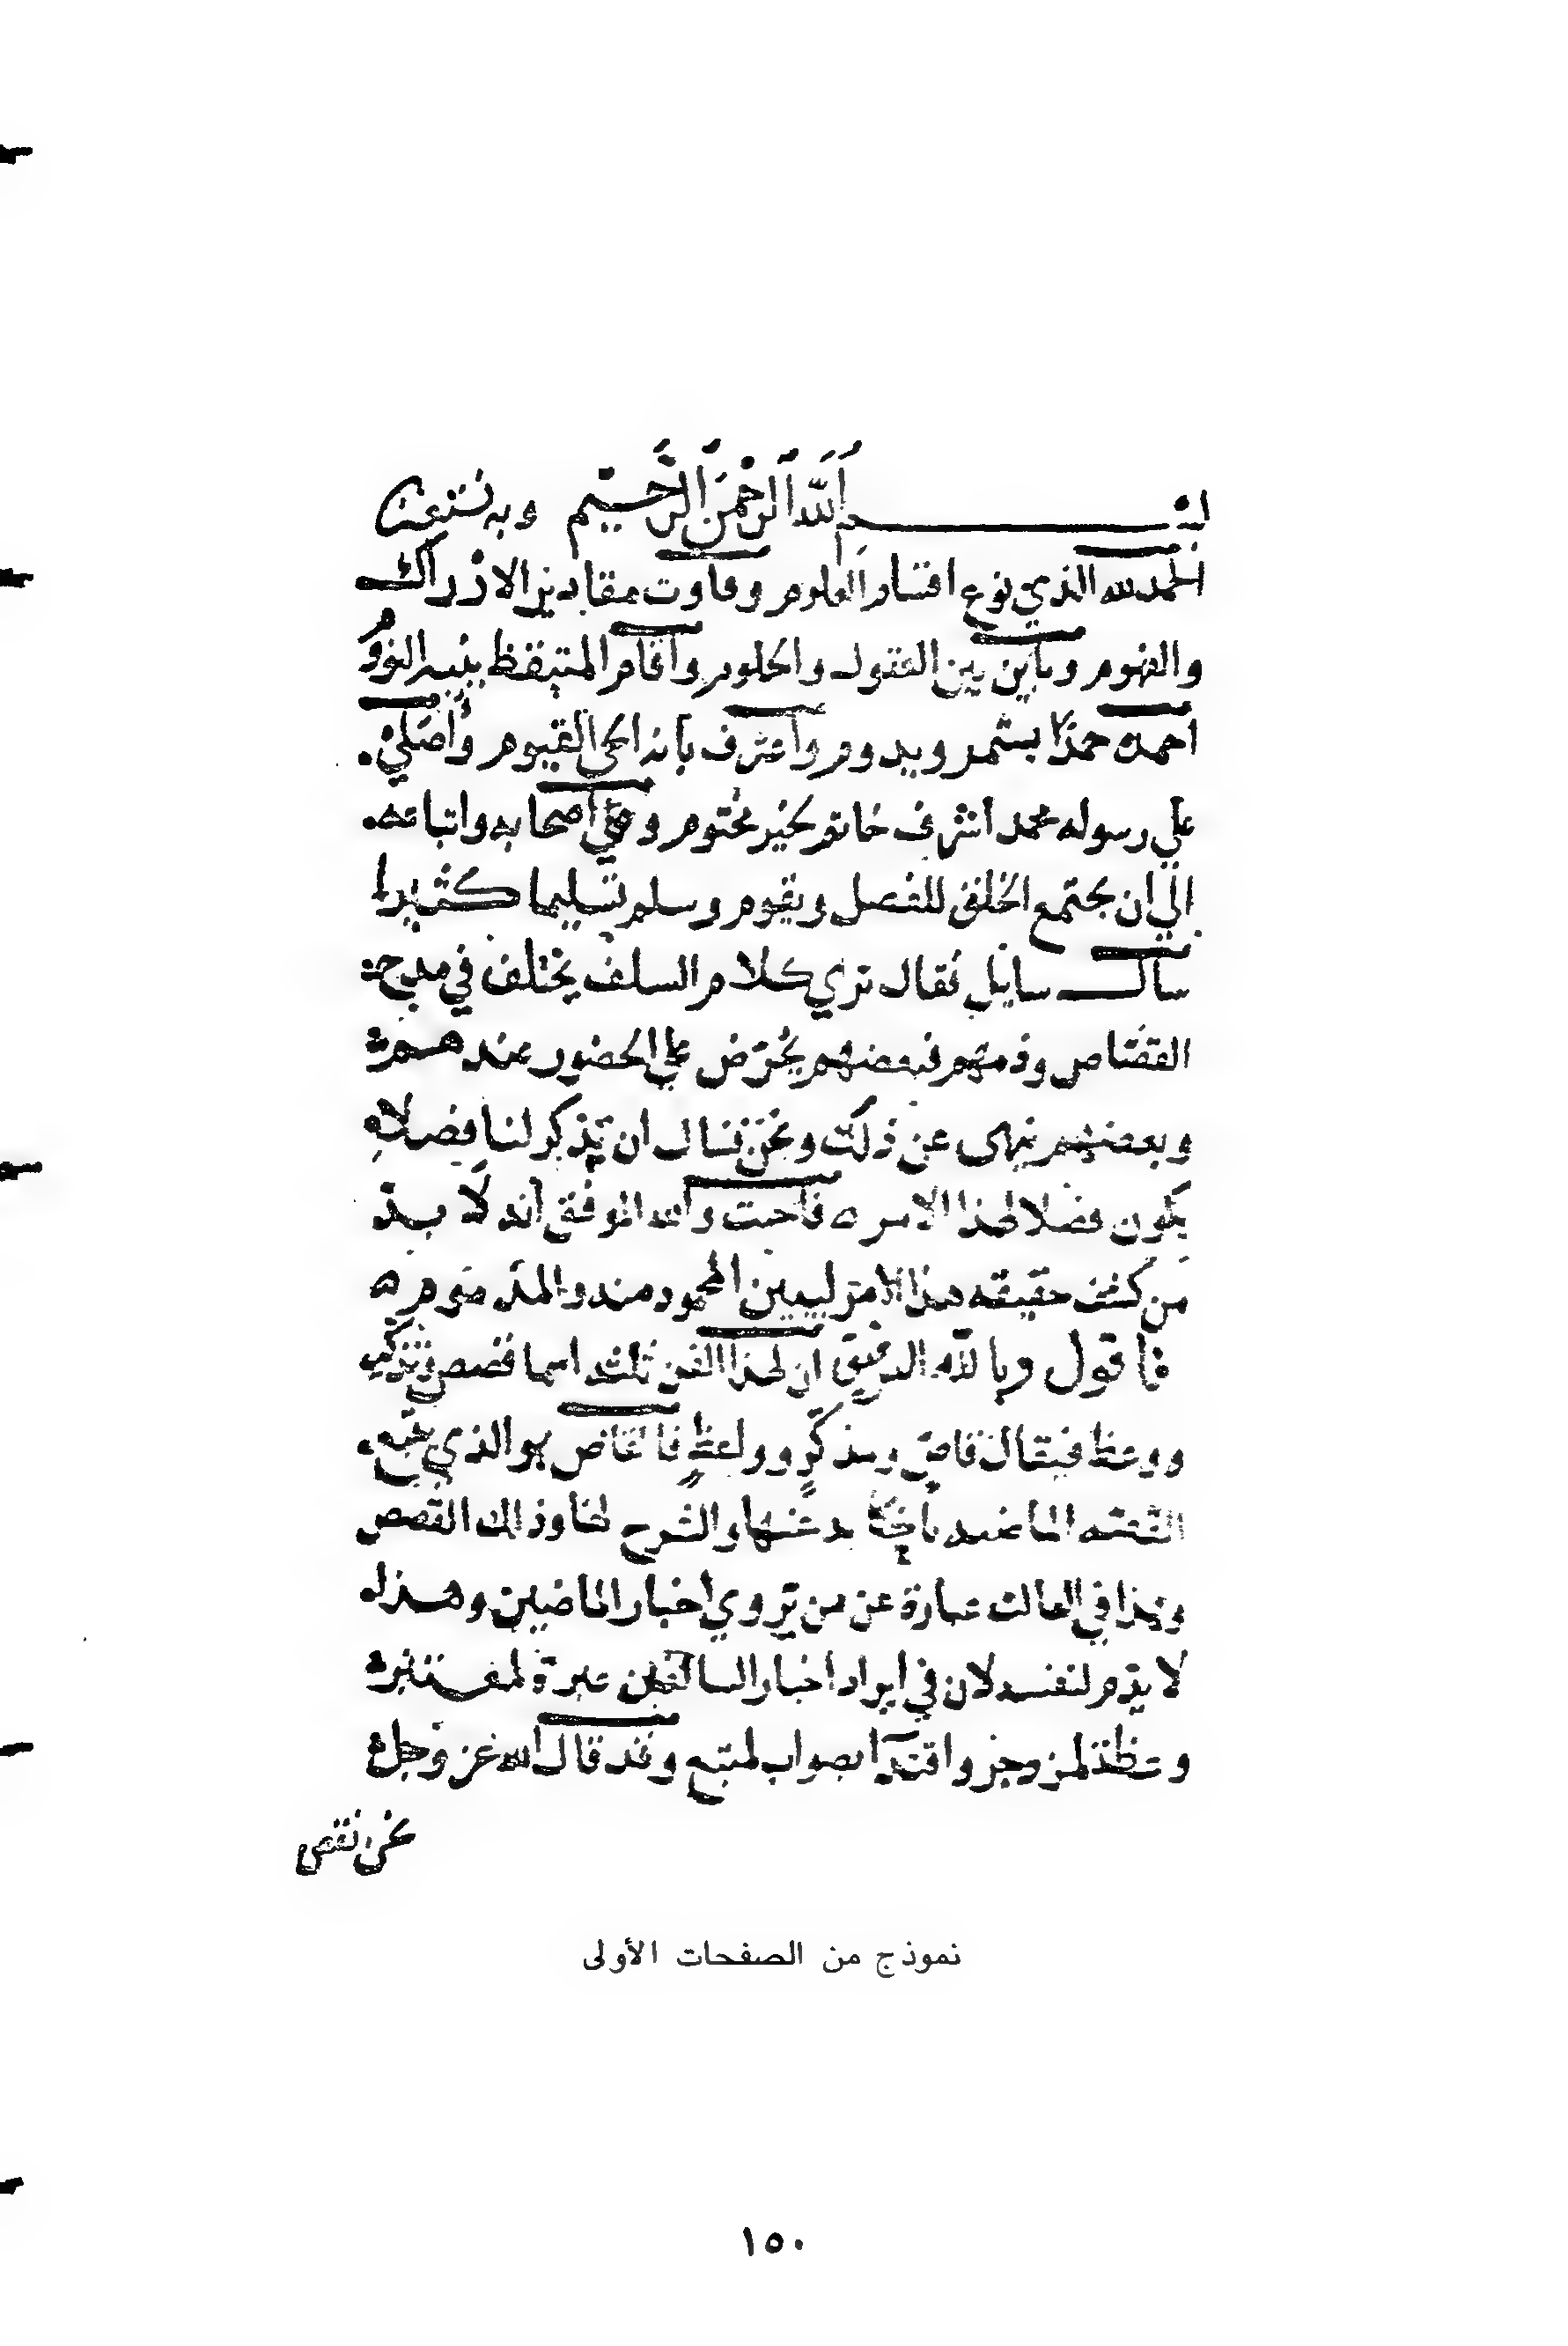 بسم الله الرحمن الرحيم وبه نستعين
الحمد لله الذي نوع اقسام العلوم وفاوت مقادير الادراك
والفهوم وباين بين العقول والحلوم واقام المتيقظ ينبه النوؤم
احمده حمدًا يستمر ويدوم واعترف بانه الحي القيوم وأصلي
علي رسوله محمد اشرف خاتم لخير مختوم وعلي أصحابه واتباعه
الي ان يجتمع الخلق للفصل ويقوم وسلم تسليما كثيرا
سأل سايل فقال نري كلام السلف يختلف في مدح
القصّاص وذمهم فبعضهم يحرّض علي الحضور عندهم
وبعضهم ينهى عن ذلك ونحن نسال ان تذكر لنا فصلا
يكون فصلا لهذا الامر فأجبت والله الموفق أنه لا بد
من كشف حقيقه هذا الامر ليبين المحمود منه والمذموم
فاقول وبالله التوفيق ان لهذا الفن ثلثه اسما قصص وتذكير
ووعظ فيقال قاصّ ومذكّرٍ وواعظٍ فالقاص هو الذي يتبع
القصه الماضيه بالحكايه عنها والشرح لها وذلك القصص
وهذا في الغالب عبارة عن من يروي اخبار الماضين وهذا
لا يذم لنفسه لان في ايراد اخبار السالفين عبرة لمعتبر
وعظة لمزدجز واقتدآ بصواب لمتبع وقد قال الله عز وجل
نحن نقص
نموذج من الصفحات الأولى
١٥٠